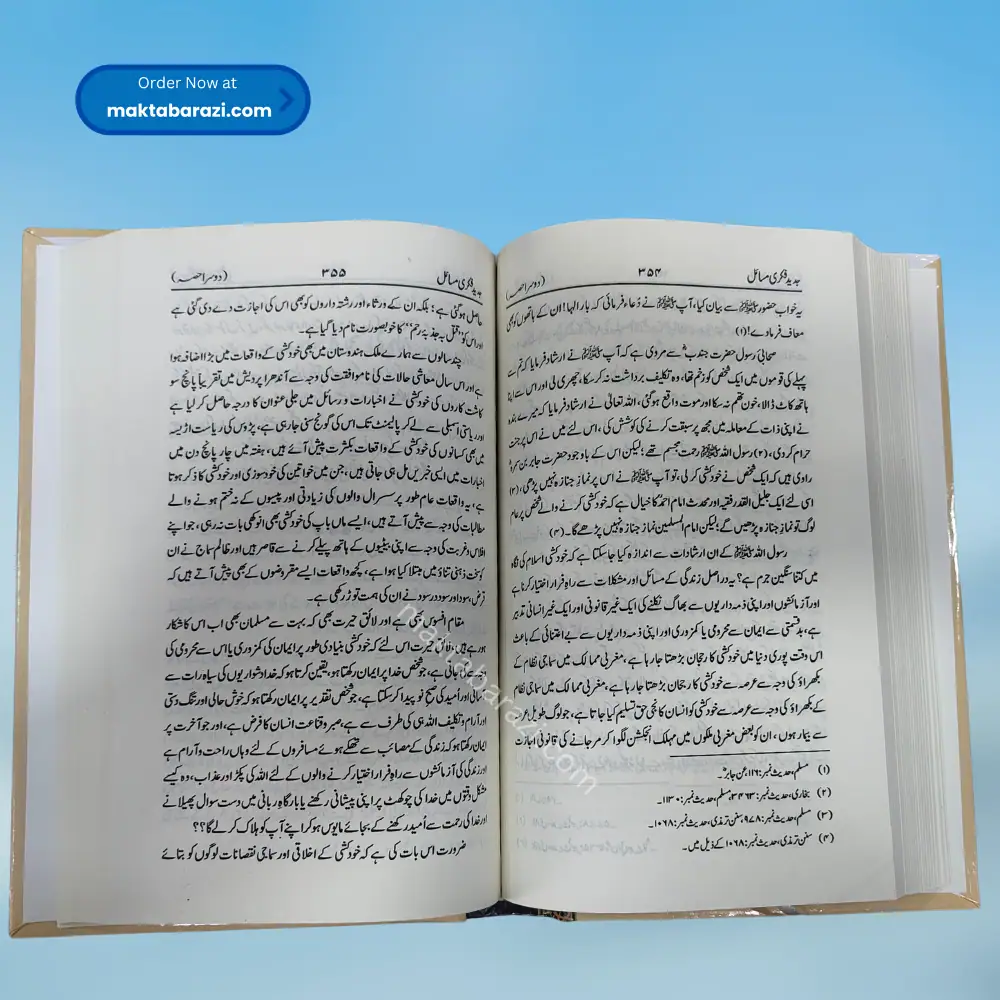 Order Now at
maktabarazi.com
جدید فکری مسائل ۳۵۴ (دوسرا حصہ)
یہ خواب حضور ﷺ سے بیان کیا، آپ ﷺ نے دُعاء فرمائی کہ بار الٰہا! ان کے ہاتھوں کو بھی
معاف فرمادے! (۱)
صحابیٔ رسول حضرت جندبؓ سے مروی ہے کہ آپ ﷺ نے ارشاد فرمایا کہ تم سے
پہلے کی قوموں میں ایک شخص کو زخم تھا، وہ تکلیف برداشت نہ کرسکا، چھری لی اور اس سے اپنا
ہاتھ کاٹ ڈالا، خون تھم نہ سکا اور موت واقع ہوگئی، اللہ تعالیٰ نے ارشاد فرمایا کہ میرے بندہ
نے اپنی ذات کے معاملہ میں مجھ پر سبقت کرنے کی کوشش کی، اس لئے میں نے اس پر جنت
حرام کردی، (۲) رسول اللہ ﷺ رحمت مجسم تھے؛ لیکن اس کے باوجود حضرت جابر بن سمرہؓ
راوی ہیں کہ ایک شخص نے خودکشی کرلی، تو آپ ﷺ نے اس پر نماز جنازہ نہیں پڑھی، (۳)
اسی لئے ایک جلیل القدر فقیہ اور محدث امام احمدؒ کا خیال ہے کہ خودکشی کرنے والے شخص پر عام
لوگ تو نماز جنازہ پڑھیں گے؛ لیکن امام المسلمین نماز جنازہ نہیں پڑھے گا۔ (۴)
رسول اللہ ﷺ کے ان ارشادات سے اندازہ کیا جاسکتا ہے کہ خودکشی اسلام کی نگاہ
میں کتنا سنگین جرم ہے؟ یہ دراصل زندگی کے مسائل اور مشکلات سے راہِ فرار اختیار کرنا ہے
اور آزمائشوں اور اپنی ذمہ داریوں سے بھاگ نکلنے کی ایک غیر قانونی اور ایک غیر انسانی تدبیر
ہے، بدقسمتی سے ایمان سے محرومی یا کمزوری اور اپنی ذمہ داریوں سے بے اعتنائی کے باعث
اس وقت پوری دنیا میں خودکشی کا رجحان بڑھتا جارہا ہے، مغربی ممالک میں سماجی نظام کے
بکھراؤ کی وجہ سے عرصہ سے خودکشی کا رجحان بڑھتا جارہا ہے، مغربی ممالک میں سماجی نظام
کے بکھراؤ کی وجہ سے عرصہ سے خودکشی کو انسان کا نجی حق تسلیم کیا جاتا ہے، جو لوگ طویل عرصہ
سے بیمار ہوں، ان کو بعض مغربی ملکوں میں مہلک انجکشن لگوا کر مرجانے کی قانونی اجازت
(۱) مسلم، حدیث نمبر: ۱۱۶، عن جابرؓ۔
(۲) بخاری، حدیث نمبر: ۳۴۶۳، مسلم، حدیث نمبر: ۱۱۳۰۔
(۳) مسلم، حدیث نمبر: ۹۷۸، سنن ترمذی، حدیث نمبر: ۱۰۶۸۔
(۴) سنن ترمذی، حدیث نمبر: ۱۰۶۸ کے ذیل میں۔
جدید فکری مسائل ۳۵۵ (دوسرا حصہ)
حاصل ہوگئی ہے؛ بلکہ ان کے ورثاء اور رشتہ داروں کو بھی اس کی اجازت دے دی گئی ہے
اور اس کو "قتل بہ جذبۂ رحم" کا خوبصورت نام دیا گیا ہے۔
چند سالوں سے ہمارے ملک ہندوستان میں بھی خودکشی کے واقعات میں بڑا اضافہ ہوا
ہے اور اس سال معاشی حالات کی ناموافقت کی وجہ سے آندھرا پردیش میں تقریباً پانچ سو
کاشت کاروں کی خودکشی نے اخبارات و رسائل میں جلی عنوان کا درجہ حاصل کرلیا ہے
اور ریاستی اسمبلی سے لے کر پارلیمنٹ تک اس کی گونج سنی جارہی ہے، پڑوس کی ریاست اڑیسہ
میں بھی کسانوں کی خودکشی کے واقعات بکثرت پیش آئے ہیں، ہفتہ میں چار پانچ دن میں
اخبارات میں ایسی خبریں مل ہی جاتی ہیں، جن میں خواتین کی خودسوزی اور خودکشی کا ذکر ہوتا
ہے، یہ واقعات عام طور پر سسرال والوں کی زیادتی اور پیسوں کے نہ ختم ہونے والے
مطالبات کی وجہ سے پیش آتے ہیں، ایسے ماں باپ کی خودکشی بھی انوکھی بات نہ رہی، جو اپنے
افلاس و غربت کی وجہ سے اپنی بیٹیوں کے ہاتھ پیلے کرنے سے قاصر ہیں اور ظالم سماج نے ان
کو سخت ذہنی تناؤ میں مبتلا کیا ہوا ہے، کچھ واقعات ایسے مقروضوں کے بھی پیش آتے ہیں کہ
قرض، سود اور سود در سود نے ان کی ہمت توڑ رکھی ہے۔
مقام افسوس بھی ہے اور لائق حیرت بھی کہ بہت سے مسلمان بھی اب اس کا شکار
ہورہے ہیں، لائق حیرت اس لئے کہ خودکشی بنیادی طور پر ایمان کی کمزوری یا اس سے محرومی کی
جاتی ہے، جو شخص خدا پر ایمان رکھتا ہو، یقین کرتا ہو کہ خدا دشواریوں کی سیاہ رات سے
اور اُمید کی صبح نو پیدا کرسکتا ہے، جو شخص تقدیر پر ایمان رکھتا ہو کہ خوش حالی اور تنگ دستی
اور آرام و تکلیف اللہ ہی کی طرف سے ہے، صبر و قناعت انسان کا فرض ہے، اور جو آخرت پر
ایمان رکھتا ہو کہ زندگی کے مصائب سے تھکے ہوئے مسافروں کے لئے وہاں راحت و آرام ہے
اور زندگی کی آزمائشوں سے راہِ فرار اختیار کرنے والوں کے لئے اللہ کی پکڑ اور عذاب، وہ کیسے
مشکل وقتوں میں خدا کی چوکھٹ پر اپنی پیشانی رکھنے یا بارگاہِ ربانی میں دست سوال پھیلانے
اور خدا کی رحمت سے اُمید رکھنے کے بجائے مایوس ہوکر اپنے آپ کو ہلاک کرلے گا؟؟
ضرورت اس بات کی ہے کہ خودکشی کے اخلاقی اور سماجی نقصانات لوگوں کو بتائے
maktabarazi.com